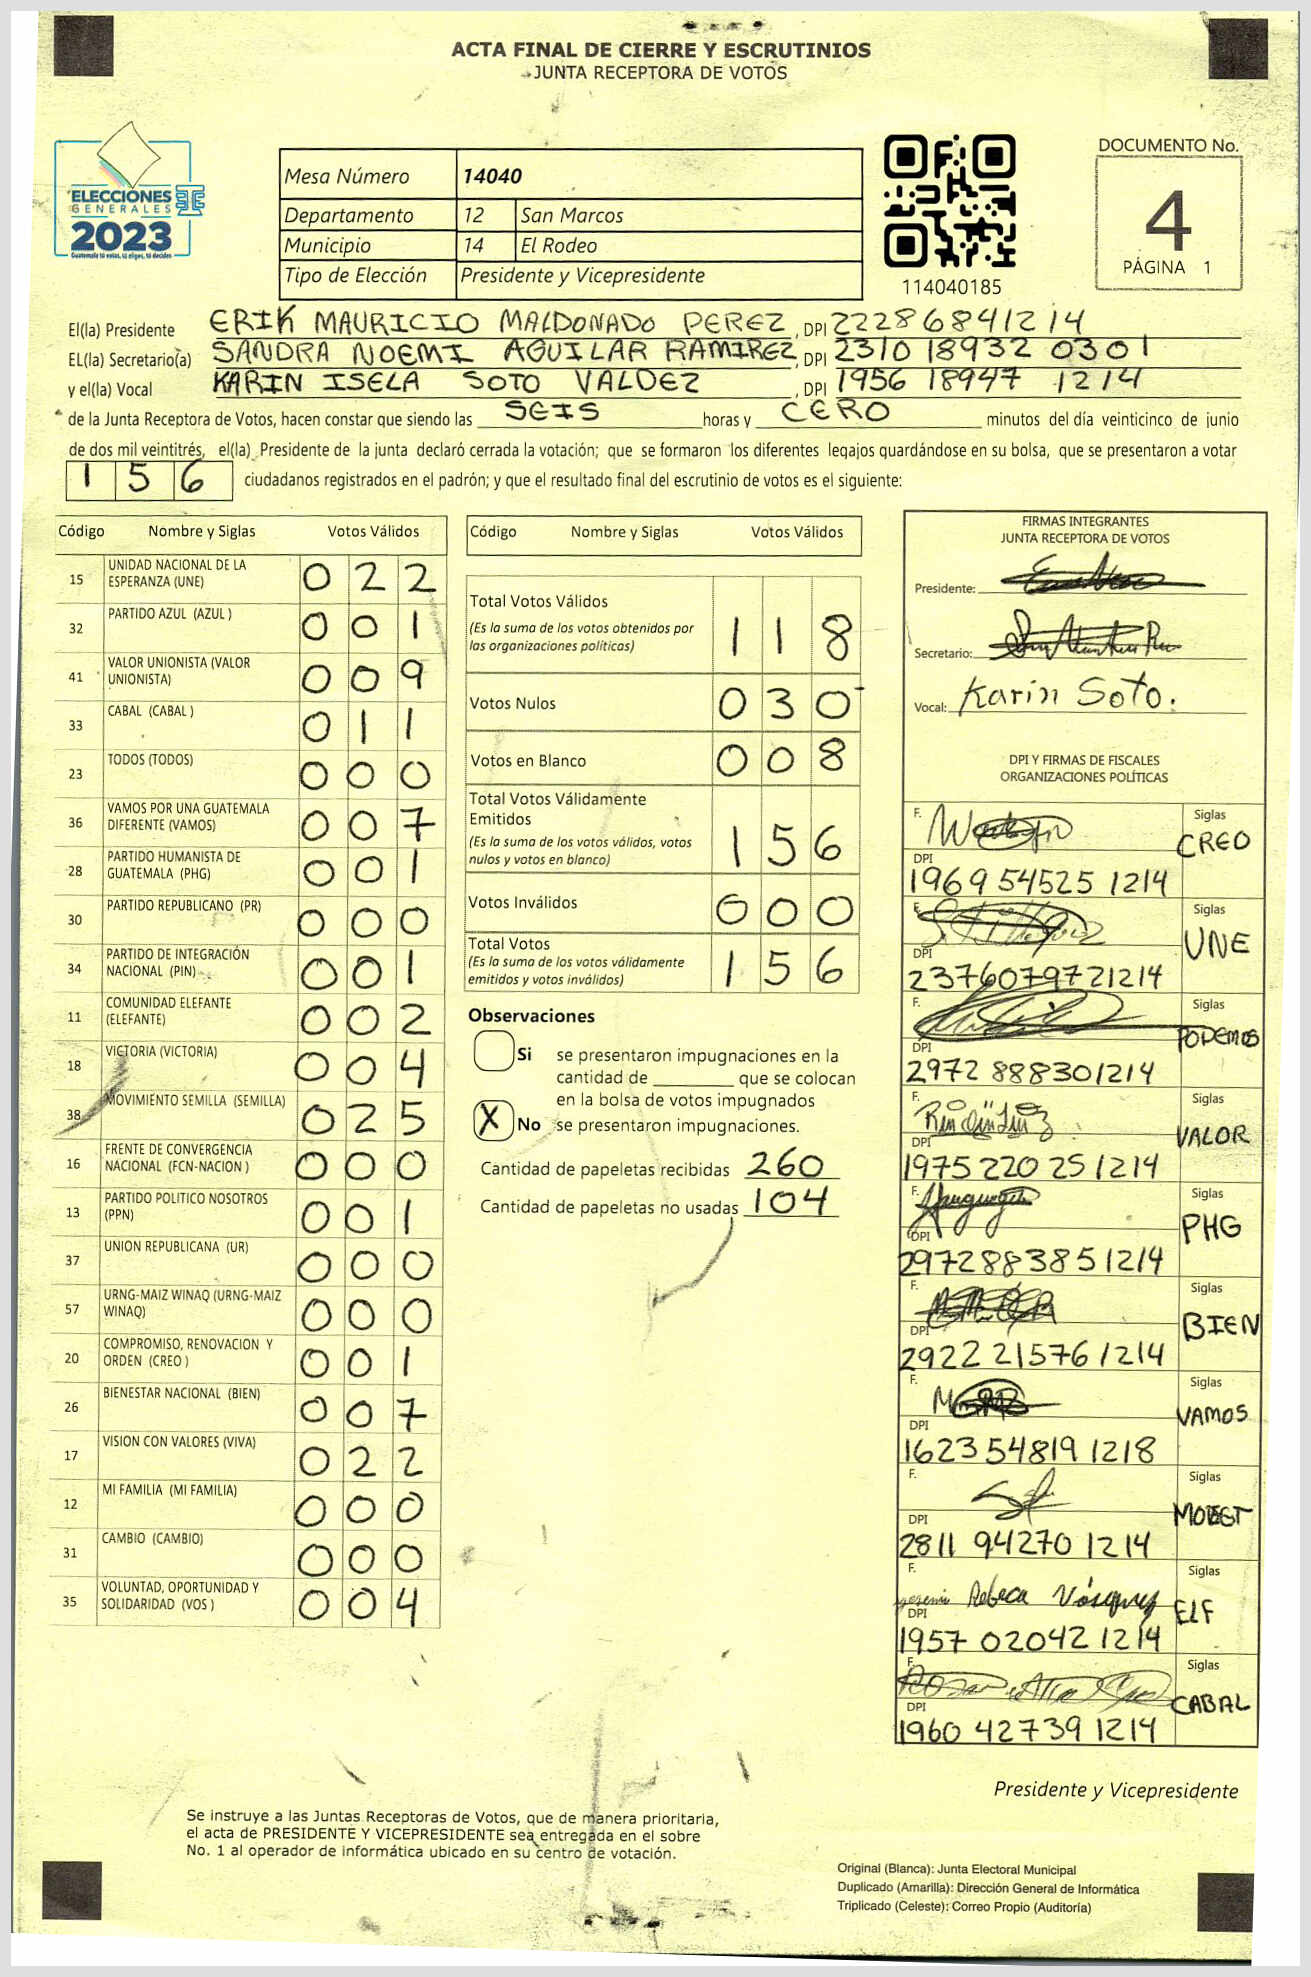 ACTA FINAL DE CIERRE Y ESCRUTINIOS
JUNTA RECEPTORA DE VOTOS
ELECCIONES
GENERALES
2023
Guatemala tú votas, tú eliges, tú decides
Mesa Número 14040
Departamento 12 San Marcos
Municipio 14 El Rodeo
Tipo de Elección Presidente y Vicepresidente
114040185
DOCUMENTO No.
4
PÁGINA 1
El(la) Presidente ERIK MAURICIO MALDONADO PEREZ, DPI 222868412 14
EL(la) Secretario(a) SANDRA NOEMI AGUILAR RAMIREZ, DPI 2310 18932 0301
y el(la) Vocal KARIN ISELA SOTO VALDEZ, DPI 1956 18947 1214
de la Junta Receptora de Votos, hacen constar que siendo las SEIS horas y CERO minutos del día veinticinco de junio
de dos mil veintitrés, el(la) Presidente de la junta declaró cerrada la votación; que se formaron los diferentes legajos quardándose en su bolsa, que se presentaron a votar
156 ciudadanos registrados en el padrón; y que el resultado final del escrutinio de votos es el siguiente:
Código Nombre y Siglas Votos Válidos
15 UNIDAD NACIONAL DE LA ESPERANZA (UNE) 022
32 PARTIDO AZUL (AZUL ) 001
41 VALOR UNIONISTA (VALOR UNIONISTA) 009
33 CABAL (CABAL ) 011
23 TODOS (TODOS) 000
36 VAMOS POR UNA GUATEMALA DIFERENTE (VAMOS) 007
28 PARTIDO HUMANISTA DE GUATEMALA (PHG) 001
30 PARTIDO REPUBLICANO (PR) 000
34 PARTIDO DE INTEGRACIÓN NACIONAL (PIN) 001
11 COMUNIDAD ELEFANTE (ELEFANTE) 002
18 VICTORIA (VICTORIA) 004
38 MOVIMIENTO SEMILLA (SEMILLA) 025
16 FRENTE DE CONVERGENCIA NACIONAL (FCN-NACION ) 000
13 PARTIDO POLITICO NOSOTROS (PPN) 001
37 UNION REPUBLICANA (UR) 000
57 URNG-MAIZ WINAQ (URNG-MAIZ WINAQ) 000
20 COMPROMISO, RENOVACION Y ORDEN (CREO ) 001
26 BIENESTAR NACIONAL (BIEN) 007
17 VISION CON VALORES (VIVA) 022
12 MI FAMILIA (MI FAMILIA) 000
31 CAMBIO (CAMBIO) 000
35 VOLUNTAD, OPORTUNIDAD Y SOLIDARIDAD (VOS ) 004
Código Nombre y Siglas Votos Válidos
Total Votos Válidos 118
(Es la suma de los votos obtenidos por
las organizaciones políticas)
Votos Nulos 030
Votos en Blanco 008
Total Votos Válidamente
Emitidos 156
(Es la suma de los votos válidos, votos
nulos y votos en blanco)
Votos Inválidos 000
Total Votos 156
(Es la suma de los votos válidamente
emitidos y votos inválidos)
Observaciones
Si se presentaron impugnaciones en la
cantidad de ________ que se colocan
en la bolsa de votos impugnados
X No se presentaron impugnaciones.
Cantidad de papeletas recibidas 260
Cantidad de papeletas no usadas 104
FIRMAS INTEGRANTES
JUNTA RECEPTORA DE VOTOS
Presidente:
Secretario:
Vocal: Karin Soto.
DPI Y FIRMAS DE FISCALES
ORGANIZACIONES POLÍTICAS
F. Siglas CREO
DPI 1969 54525 1214
F. Siglas UNE
DPI 2376079721214
F. Siglas PODEMOS
DPI 2972 888301214
F. Siglas VALOR
DPI 1975 220 25 1214
F. Siglas PHG
DPI 2972883851214
F. Siglas BIEN
DPI 2922 21576 1214
F. Siglas VAMOS
DPI 1623 54819 1218
F. Siglas
DPI 2811 94270 1214
F. Rebeca Vásquez Siglas ELF
DPI 1957 02042 1214
F. Siglas CABAL
DPI 1960 42739 1214
Presidente y Vicepresidente
Se instruye a las Juntas Receptoras de Votos, que de manera prioritaria,
el acta de PRESIDENTE Y VICEPRESIDENTE sea entregada en el sobre
No. 1 al operador de informática ubicado en su centro de votación.
Original (Blanca): Junta Electoral Municipal
Duplicado (Amarilla): Dirección General de Informática
Triplicado (Celeste): Correo Propio (Auditoría)